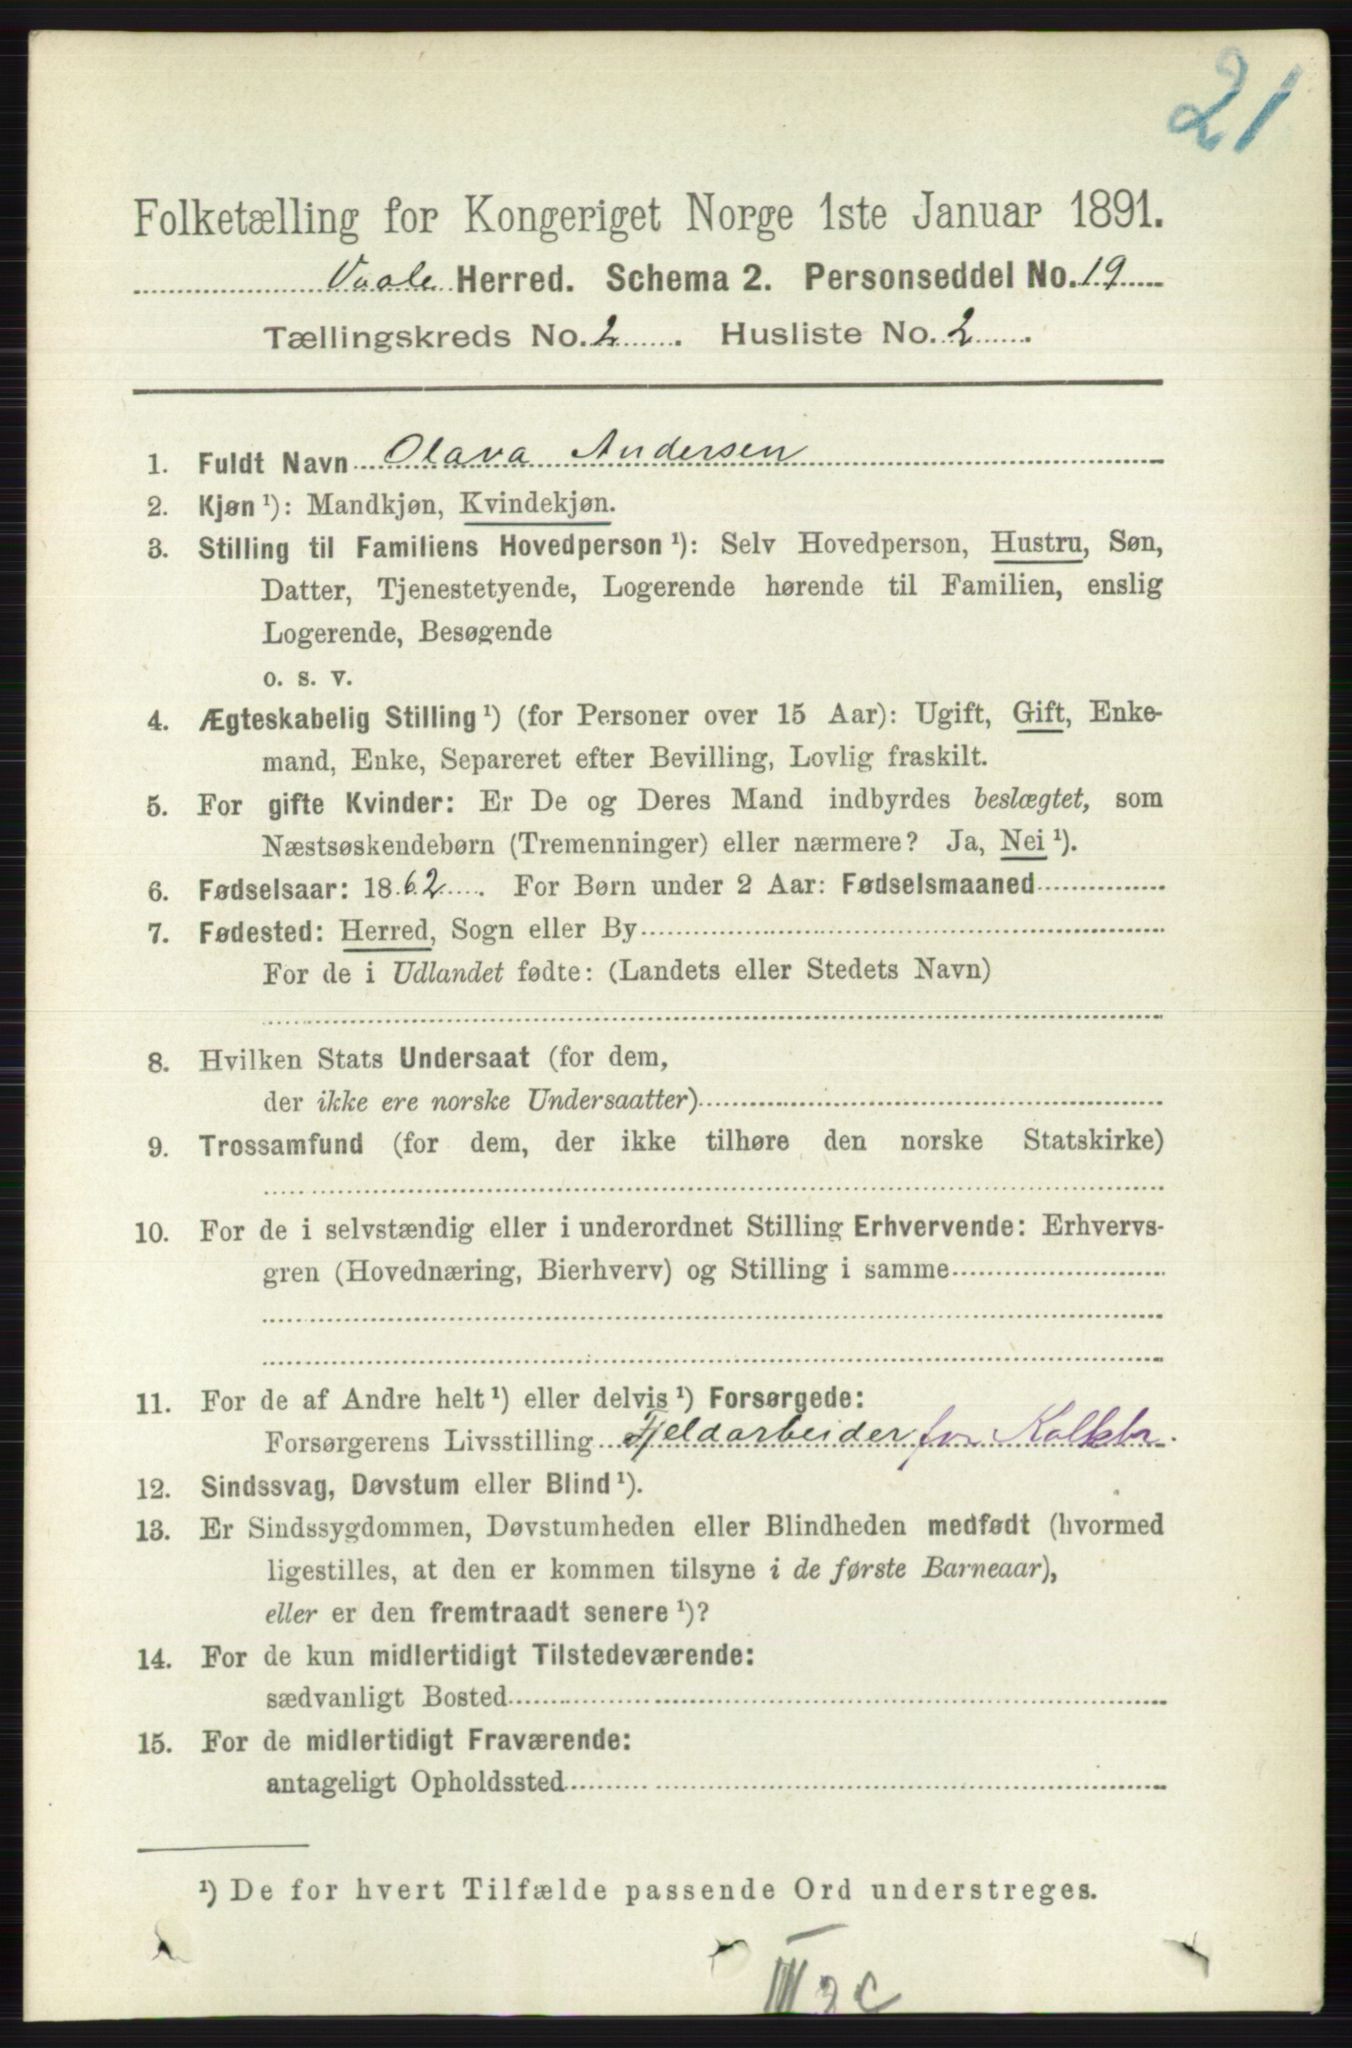 21
Folketælling for Kongeriget Norge 1ste Januar 1891.
Vaale Herred. Schema 2. Personseddel No. 19
Tællingskreds No. 2. Husliste No. 2.
1. Fuldt Navn Olava Andersen
2. Kjøn ¹): Mandkjøn, Kvindekjøn.
3. Stilling til Familiens Hovedperson ¹): Selv Hovedperson, Hustru, Søn,
Datter, Tjenestetyende, Logerende hørende til Familien, enslig
Logerende, Besøgende
o. s. v.
4. Ægteskabelig Stilling ¹) (for Personer over 15 Aar): Ugift, Gift, Enke-
mand, Enke, Separeret efter Bevilling, Lovlig fraskilt.
5. For gifte Kvinder: Er De og Deres Mand indbyrdes beslægtet, som
Næstsøskendebørn (Tremenninger) eller nærmere? Ja, Nei ¹).
6. Fødselsaar: 1862. For Børn under 2 Aar: Fødselsmaaned
7. Fødested: Herred, Sogn eller By
For de i Udlandet fødte: (Landets eller Stedets Navn)
8. Hvilken Stats Undersaat (for dem,
der ikke ere norske Undersaatter)
9. Trossamfund (for dem, der ikke tilhøre den norske Statskirke)
10. For de i selvstændig eller i underordnet Stilling Erhvervende: Erhvervs-
gren (Hovednæring, Bierhverv) og Stilling i samme
11. For de af Andre helt ¹) eller delvis ¹) Forsørgede:
Forsørgerens Livsstilling Fjeldarbeider for Kalkbr.
12. Sindssvag, Døvstum eller Blind ¹).
13. Er Sindssygdommen, Døvstumheden eller Blindheden medfødt (hvormed
ligestilles, at den er kommen tilsyne i de første Barneaar),
eller er den fremtraadt senere ¹)?
14. For de kun midlertidigt Tilstedeværende:
sædvanligt Bosted
15. For de midlertidigt Fraværende:
antageligt Opholdssted
¹) De for hvert Tilfælde passende Ord understreges.
III 2c